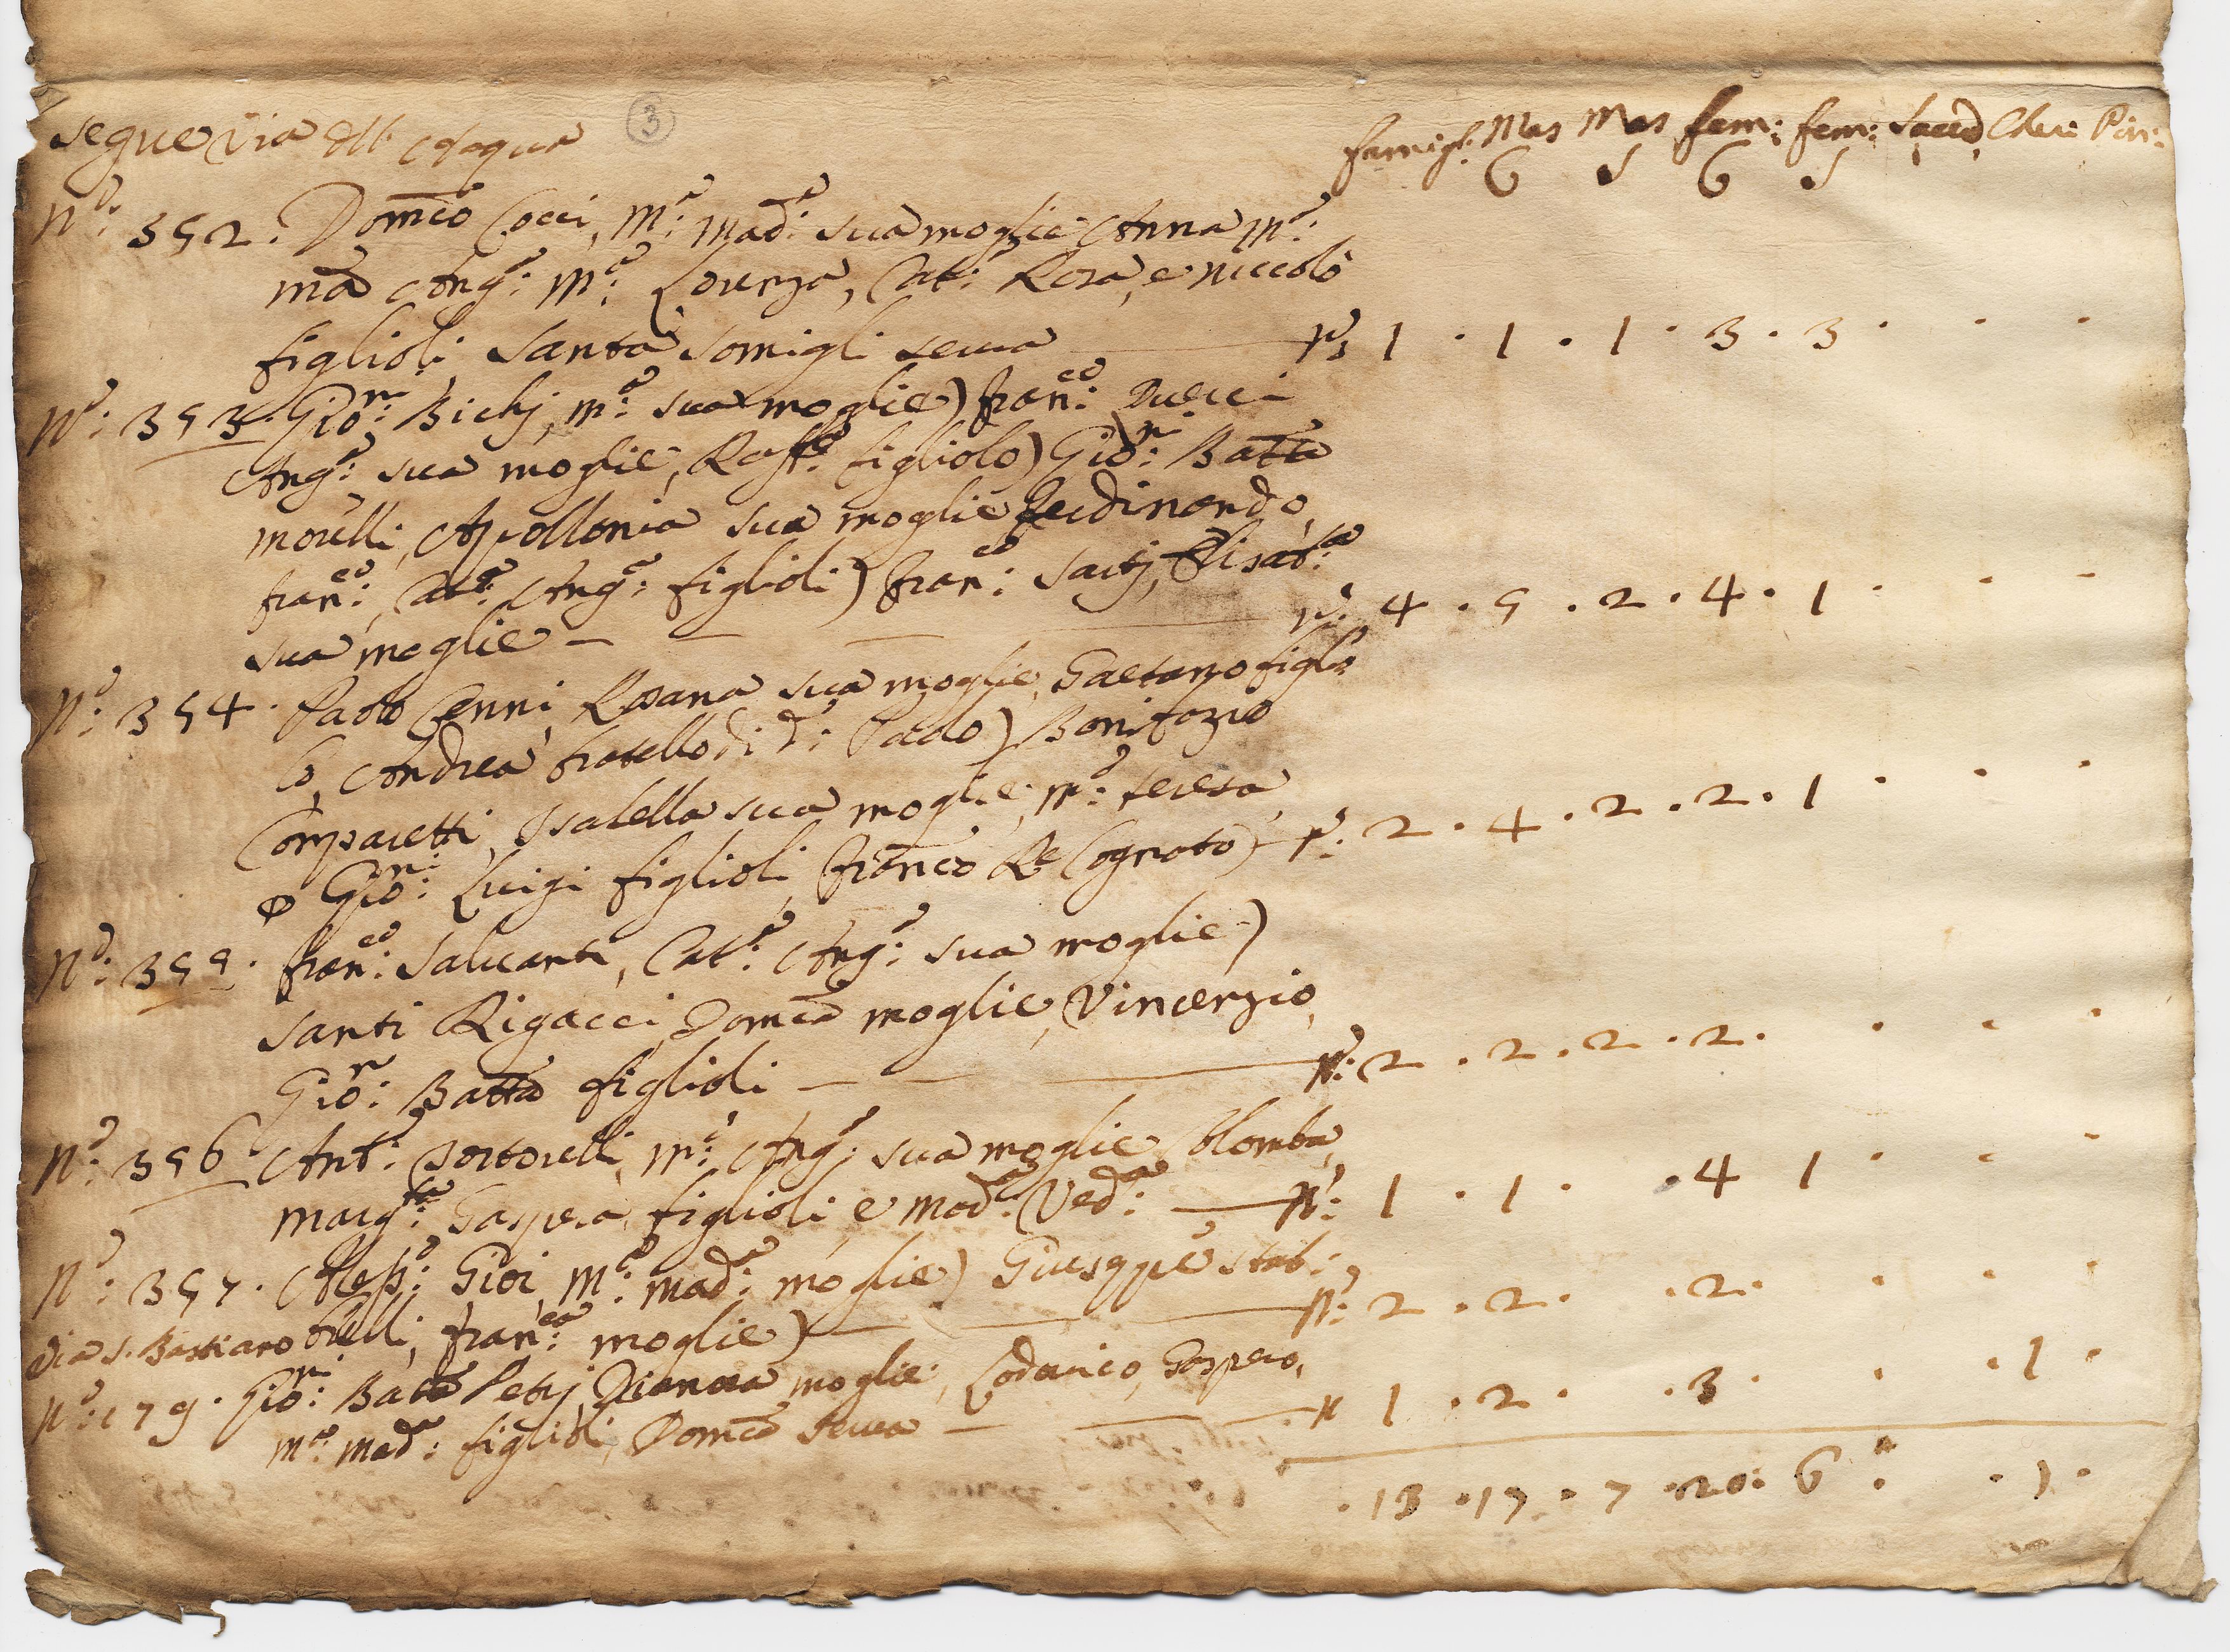 segue Via dell' Acqua 3
famigl: Mas Mas fem: fem: Sacerd Cher: Pin:
C S C S
N.o: 352. Dom.co Cocci, M.a: Mad.a: sua moglie Anna M.a:
Mad Ang.a: M.a: Lorenza, Cat.a: Rosa, e Niccolò
figlioli, Santa Somigli serva — n.o 1 . 1 . 1 . 3 . 3 . . .
N.o: 353. Gio.n: Bichj, M.a: sua moglie) Fran.co: Ducci
Ang.a: sua moglie, Raff.o: figliolo) Gio.n: Batta
Morelli, Apollonia sua moglie Ferdinando,
Fran.co: Cat.a: Ang.a: figlioli) Fran.co: Sartj, Elisab.ta
sua moglie — — — n.o: 4 . 5 . 2 . 4 . 1 . . .
N.o: 354. Paolo Cenni, Rosana sua moglie, Gaetano figlio
lo, Andrea fratello di d.o: Paolo) Bonifazio
Comparetti, Isabella sua moglie, M.a: Teresa
Gio.n: Luigi figlioli, Fran.co Re Cognato) — n.o: 2 . 4 . 2 . 2 . 1 . . .
N.o: 355. Fran.co: Salvanti, Cat.a: Ang.a: sua moglie)
Santi Rigacci, Dom.ca moglie, Vincenzio,
Gio.n: Batta figlioli — — — n.o: 2 . 2 . 2 . 2 . . . .
N.o: 356. Ant.o: Sortorelli, M.a: Ang.a: sua moglie Colomba,
Marg.ta: Gaspera, figlioli, e Mad.a: Ved.a: — n.o: 1 . 1 . . 4 1 . . .
N.o: 357. Aless.o: Gioi, M.a: Mad.a: moglie) Giuseppe Stab:
relli, Fran.ca: moglie) — — — n.o: 2 . 2 . . 2 . . . .
Via S. Bastiano
N.o: 179. Gio.n: Batta Petrj, Dianora moglie, Lodovico, Gaspero,
M.a: Mad.a: figlioli, Dom.ca serva — — — n 1 . 2 . . 3 . . . 1 .
. 13 . 17 . 7 . 20 : 6 : . 1 .